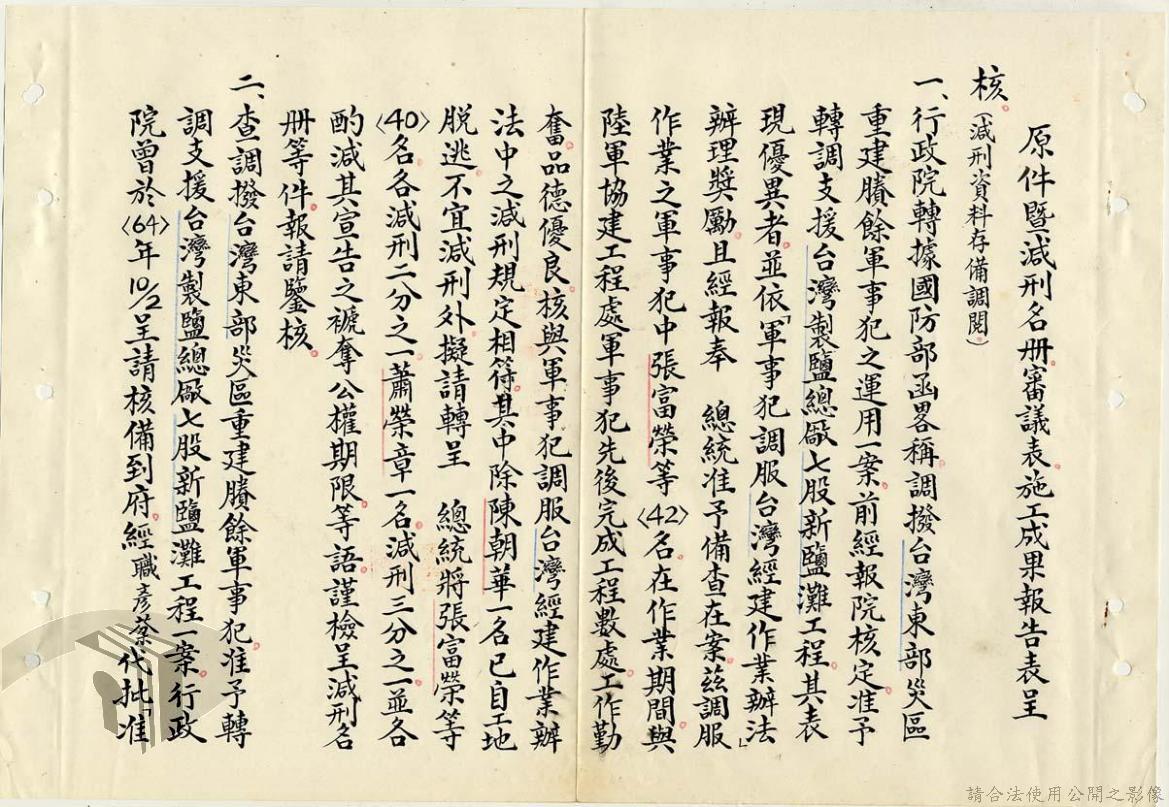 原件暨減刑名册。審議表。施工成果報告表呈
核。(減刑資料存備調閱。)
一、行政院轉據國防部函畧稱。調撥台灣東部災區
重建賸餘軍事犯之運用一案。前經報院核定。准予
轉調支援台灣製鹽總廠七股新鹽灘工程。其表
現優異者。並依「軍事犯調服台灣經建作業辦法」
辦理獎勵。且經報奉 總統准予備查在案。茲調服
作業之軍事犯中張富榮等〈42〉名。在作業期間。與
陸軍協建工程處軍事犯先後完成工程數處。工作勤
奮。品德優良。核與軍事犯調服台灣經建作業辦
法中之減刑規定相符。其中除陳朝華一名已自工地
脱逃。不宜減刑外。擬請轉呈 總統將張富榮等
〈40〉名。各減刑二分之一。蕭榮章一名。減刑三分之一。並各
酌減其宣告之褫奪公權期限。等語。謹檢呈減刑名
册等件。報請鑒核。
二、查調撥台灣東部災區重建賸餘軍事犯。准予轉
調支援台灣製鹽總廠七股新鹽灘工程一案。行政
院曾於〈64〉年10/2呈請核備到府。經職彥棻代批「准
請合法使用公開之影像